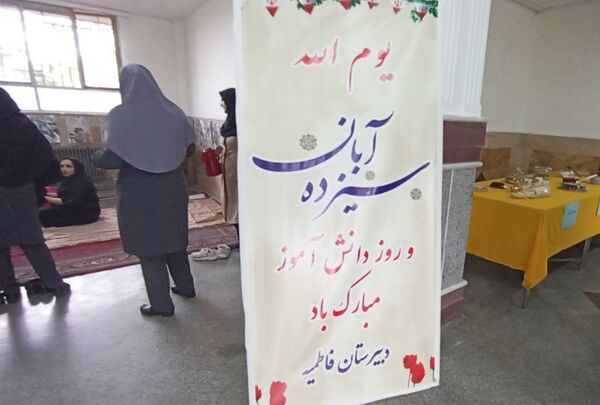 یوم الله
سیزده آبان
و روز دانش آموز
مبارک باد
دبیرستان فاطمیه